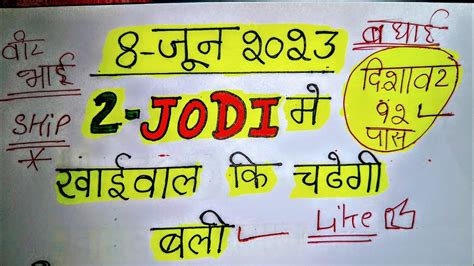 वीर भाई
SHIP
८-जून २०२३
बधाई
2-JODI मे
दिशावर
९२
पास
खाईवाल कि चढेगी
बली
Like